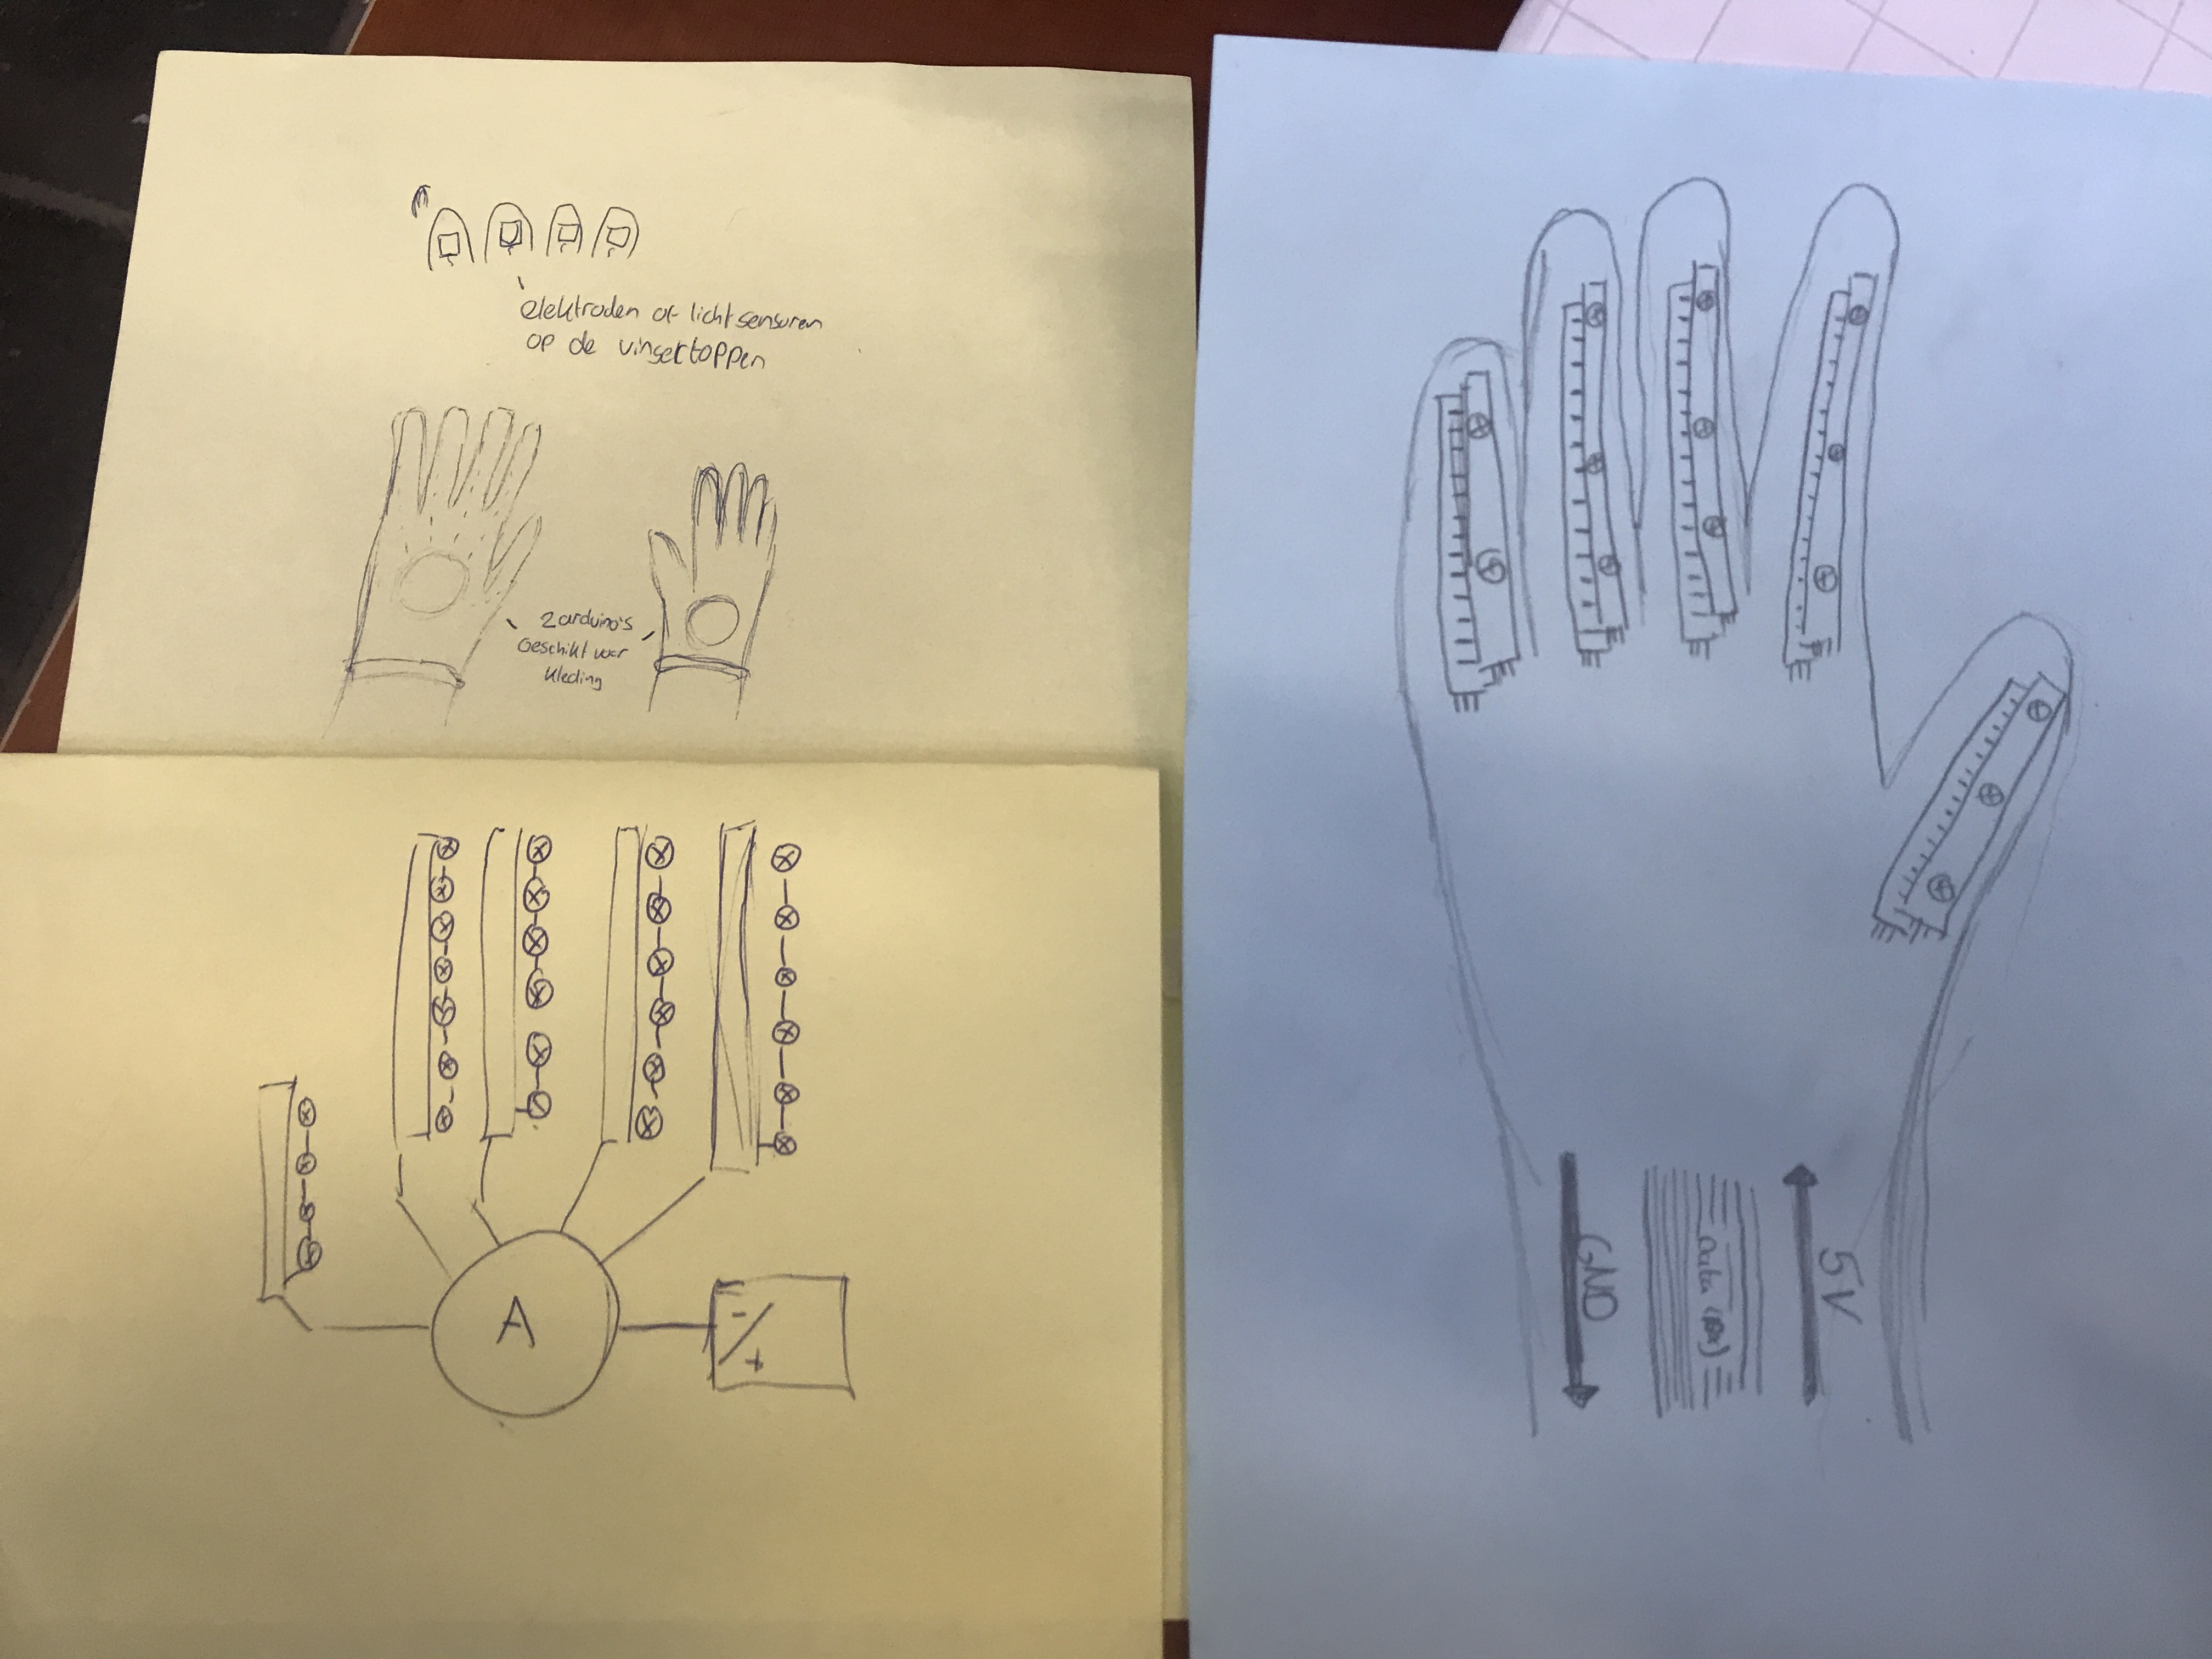 elektroden of lichtsensoren
op de vingertoppen
2 arduino's
geschikt voor
kleding
A
- / +
GND
data
5V